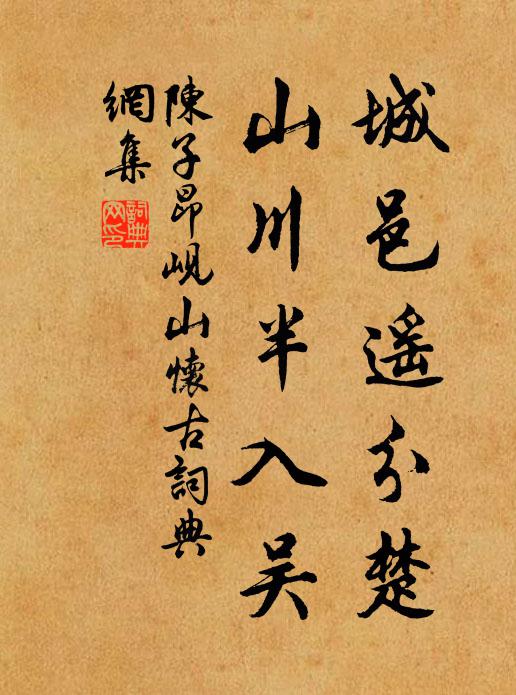 城邑遥分楚
山川半入吴
陳子昂峴山懷古詞典
網集
詞典网印